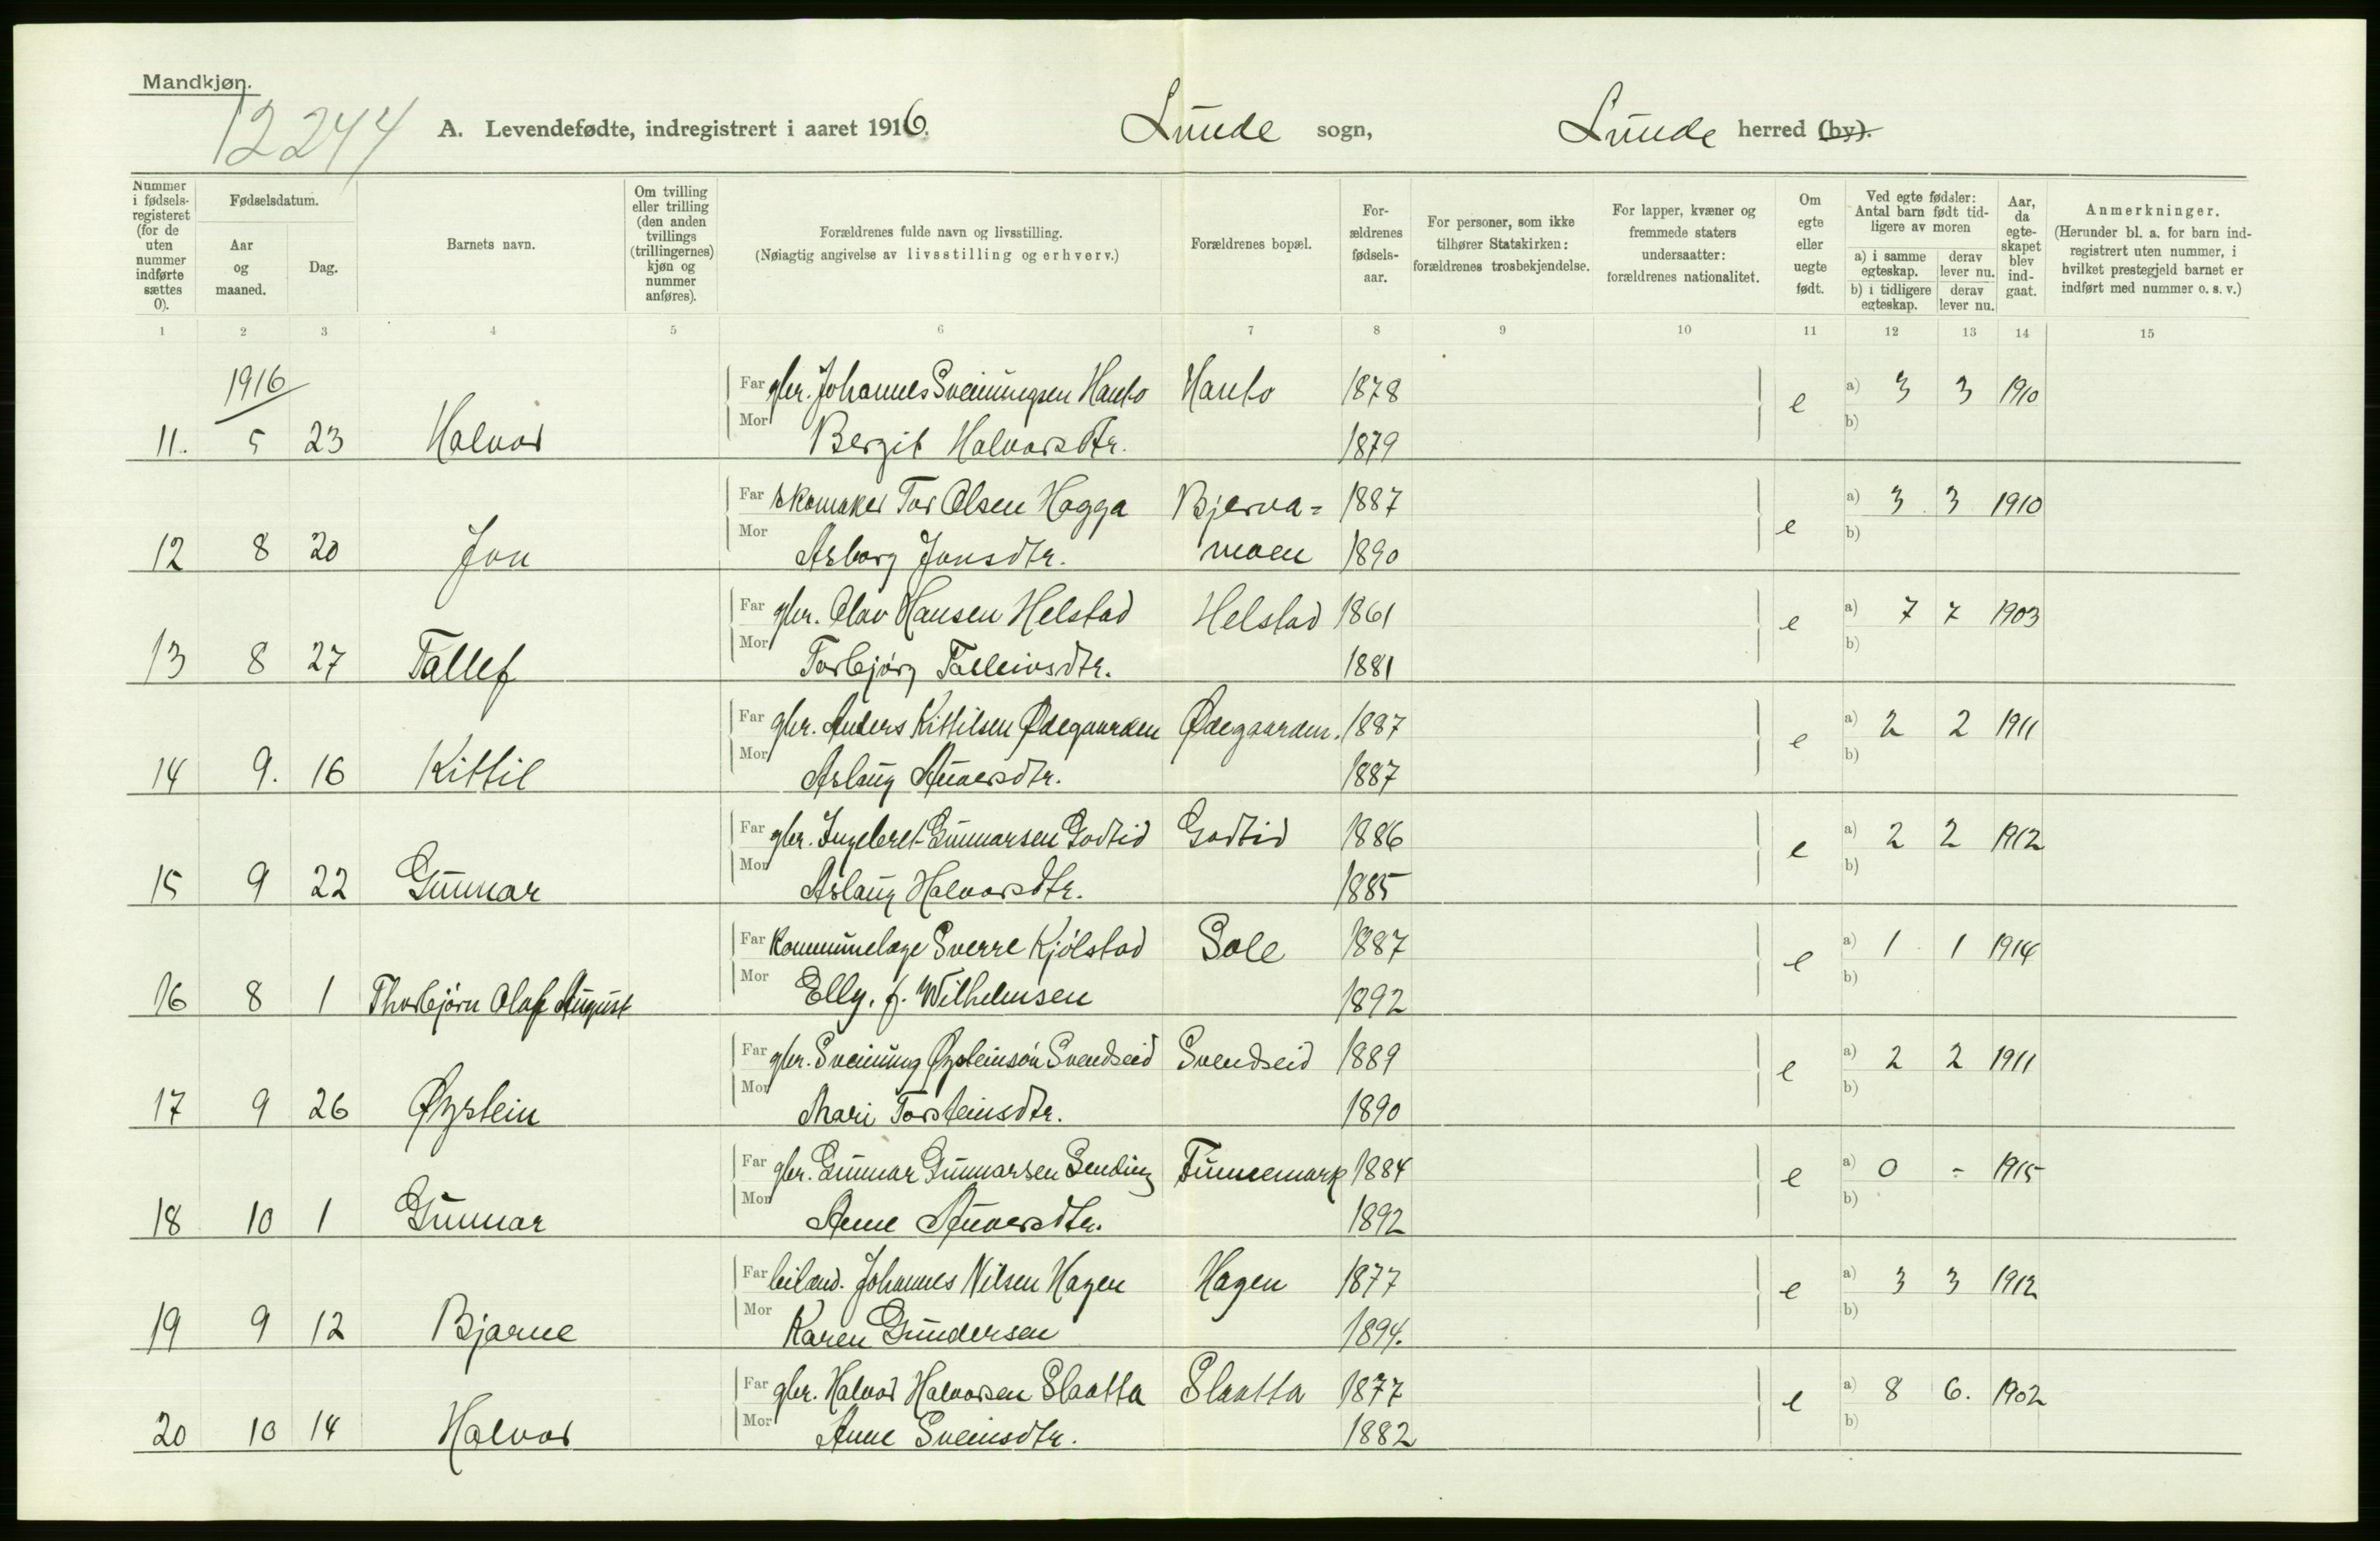 Mandkjøn.
12244
A. Levendefødte, indregistrert i aaret 1916. Lunde sogn, Lunde herred (by).
Nummer i fødsels-registeret (for de uten nummer indførte sættes 0).
Fødselsdatum.
Aar og maaned.
Dag.
Barnets navn.
Om tvilling eller trilling (den anden tvillings (trillingernes) kjøn og nummer anføres).
Forældrenes fulde navn og livsstilling.
(Nøiagtig angivelse av livsstilling og erhverv.)
Forældrenes bopæl.
For-ældrenes fødsels-aar.
For personer, som ikke tilhører Statskirken: forældrenes trosbekjendelse.
For lapper, kvæner og fremmede staters undersaatter: forældrenes nationalitet.
Om egte eller uegte født.
Ved egte fødsler: Antal barn født tid-ligere av moren
a) i samme egteskap. derav lever nu.
b) i tidligere egteskap. derav lever nu.
Aar, da egte-skapet blev ind-gaat.
Anmerkninger.
(Herunder bl. a. for barn ind-registrert uten nummer, i hvilket prestegjeld barnet er indført med nummer o. s. v.)
1 2 3 4 5 6 7 8 9 10 11 12 13 14 15
1916
Far gbr. Johannes Sveinungsen Hanto Hanto 1878 e a) 3 3 1910
11. 5 23 Halvor Mor Bergit Halvorsdtr. 1879 b)
Far skomaker Tor Olsen Hogga Bjerva= 1887 e a) 3 3 1910
12 8 20 Jon Mor Asborg Jonsdtr. moen 1890 b)
Far gbr. Olav Hansen Helstad Helstad 1861 e a) 7 7 1903
13 8 27 Tallef Mor Torbjørg Talleivsdtr. 1881 b)
Far gbr. Anders Kittilsen Ødegaarden Ødegaarden. 1887 e a) 2 2 1911
14 9. 16 Kittil Mor Aslaug Auversdtr. 1887 b)
Far gbr. Ingebret Gunnarsen Godtid Godtid 1886 e a) 2 2 1912
15 9 22 Gunnar Mor Aslaug Halvorsdtr. 1885 b)
Far Kommunelæge Sverre Kjølstad Sole 1887 e a) 1 1 1914
16 8 1 Thorbjørn Olaf August Mor Elly. f. Wilhelmsen 1892 b)
Far gbr. Sveinung Øysteinsøn Svendseid Svendseid 1889 e a) 2 2 1911
17 9 26 Øystein Mor Mari Torsteinsdtr. 1890 b)
Far gbr. Gunnar Gunnarsen Sending Funnemark 1884 e a) 0 - 1915
18 10 1 Gunnar Mor Anne Auversdtr. 1892 b)
Far leilænd. Johannes Nilsen Hagen Hagen 1877 e a) 3 3 1912
19 9 12 Bjarne Mor Karen Gundersen 1894. b)
Far gbr. Halvor Halvorsen Slaatta Slaatta 1877 e a) 8 6. 1902
20 10 14 Halvor Mor Anne Sveinsdtr. 1882 b)